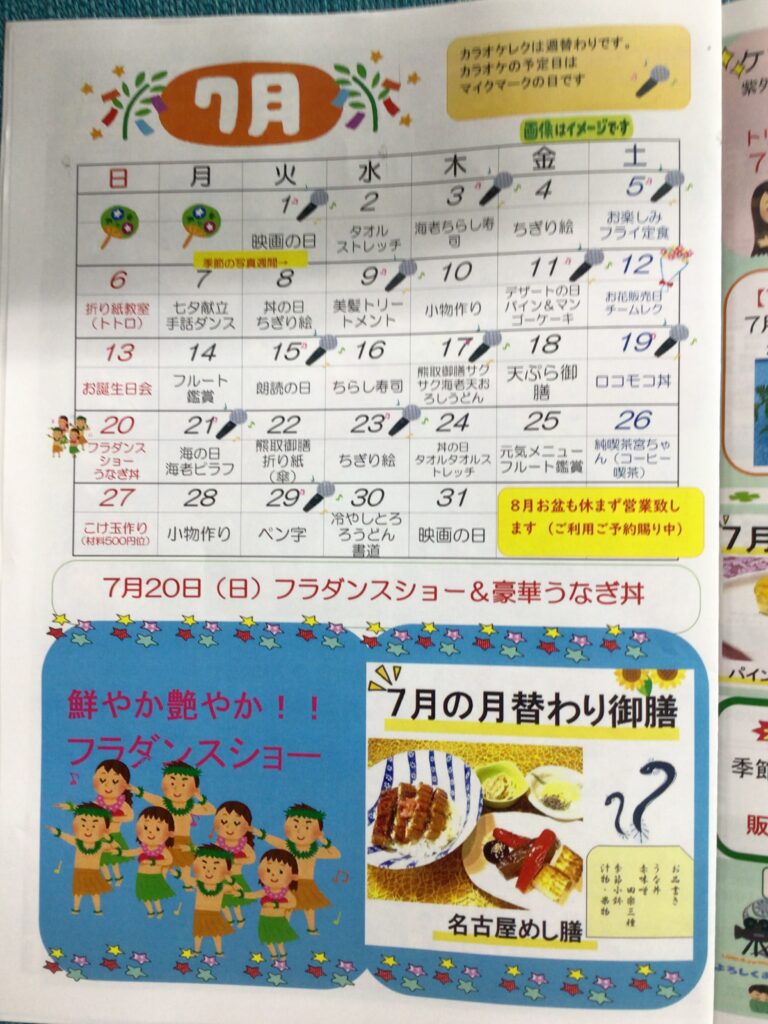 7月
カラオケレクは週替わりです。
カラオケの予定日は
マイクマークの日です
画像はイメージです
日 月 火 水 木 金 土
1 2 3 4 5
映画の日
タオル
ストレッチ
海老ちらし寿
司
ちぎり絵
お楽しみ
フライ定食
季節の写真週間→
6 7 8 9 10 11 12
折り紙教室
(トトロ)
七夕献立
手話ダンス
丼の日
ちぎり絵
美髪トリー
トメント
小物作り
デザートの日
パイン&マン
ゴーケーキ
お花販売日
チームレク
13 14 15 16 17 18 19
お誕生日会
フルート
鑑賞
朗読の日
ちらし寿司
熊取御膳サク
サク海老天お
ろしうどん
天ぷら御
膳
ロコモコ丼
20 21 22 23 24 25 26
フラダンス
ショー
うなぎ丼
海の日
海老ピラフ
熊取御膳
折り紙
(傘)
ちぎり絵
丼の日
タオルタオルス
トレッチ
元気メニュー
フルート鑑賞
純喫茶宮ちゃ
ん(コーヒー
喫茶)
27 28 29 30 31
こけ玉作り
(材料500円位)
小物作り
ペン字
冷やしとろ
ろうどん
書道
映画の日
8月お盆も休まず営業致し
ます (ご利用ご予約賜り中)
7月20日(日)フラダンスショー&豪華うなぎ丼
鮮やか艶やか!!
フラダンスショー
7月の月替わり御膳
お品書き
うな丼
赤味噌
田楽三種
季節小鉢
汁物・果物
名古屋めし膳
ケ
紫外
7
7月
7月
パイン
季節
販
よろしくお